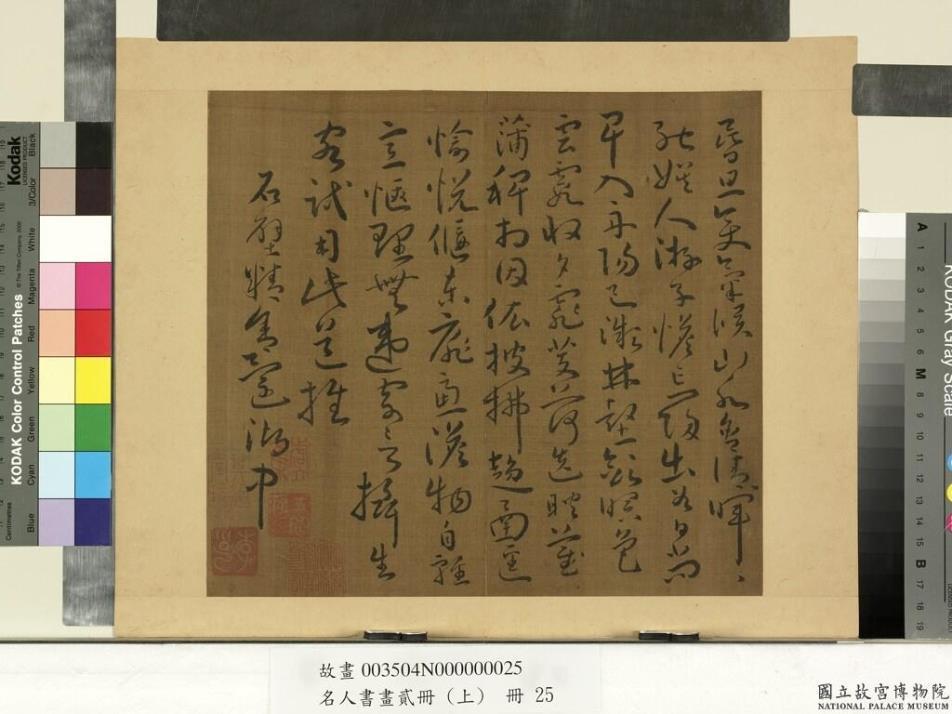 昏旦變氣候山水含清暉〻
能娛人游子憺忘歸出谷日尚
早入舟陽已微林壑斂暝色
雲霞收夕霏芰荷迭映蔚
蒲稗相因依披拂趨南逕
愉悅偃東扉慮澹物自輕
意愜理無違寄言攝生
客試用此道推
石壁精舍還湖中
故畫 003504N000000025
名人書畫貳冊（上） 冊 25
國立故宮博物院
NATIONAL PALACE MUSEUM
Kodak
KODAK Color Control Patches
Blue
Cyan
Green
Yellow
Red
Magenta
White
3/Color
Black
Centimetres
KODAK Gray Scale
A 1 2 3 4 5 6 M 8 9 10 11 12 13 14 15 B 17 18 19